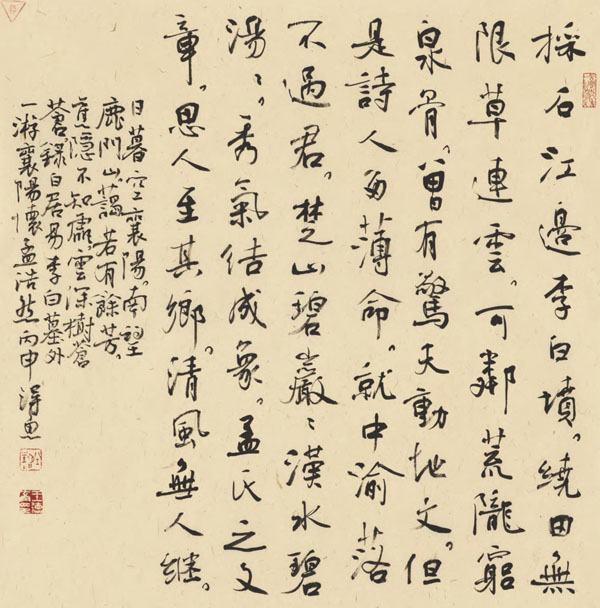 採石江邊李白墳。繞田無
限草連雲。可鄰荒隴窮
泉骨。曾有驚天動地文。但
是詩人多薄命。就中渝落
不過君。楚山碧巖々漢水碧
湯々。秀氣結成象。孟氏之文
章。思人至其鄉。清風無人继。
日暮空襄陽。南望
鹿門山藹若有餘芳。
舊隱不知處。雲深樹蒼
蒼錄白居易李白墓外
一游襄陽懷孟浩然丙申得魚